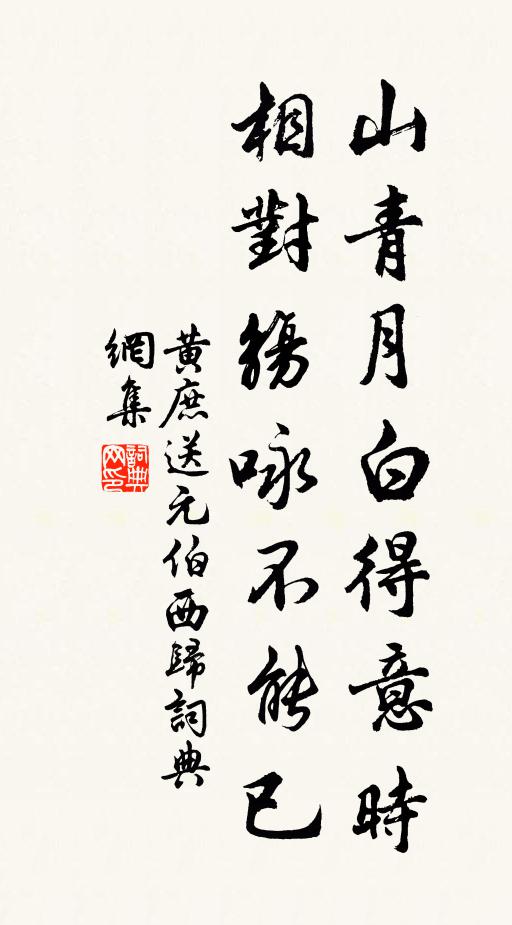 山青月白得意時
相對觴咏不能已
黃庶送元伯西歸詞典
網集
詞典
网印